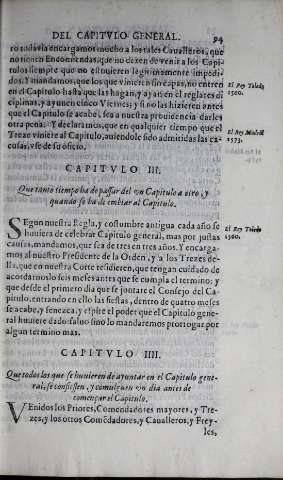 DEL CAPITVLO GENERAL. 94
ro todavia encargamos mucho a los tales Cavalleros, que
no tienen Encomiendas, que no dexen de venir a los Capi-
tulos siempre que no estuvieren legitimamente impedi-
dos. Y mandamos, que los que viniere sin capas, no entren
en el Capitulo hasta que las hagan, y ayan en el reglares di
ciplinas, y ayunen cinco Viernes; y si no las hizieren antes
que el Capitulo se acabe, sea a nuestra providencia darles
otra pena. Y declaramos, que en qualquier tiempo que el
Treze viniere al Capitulo, aviendole sido admitidas las es-
cusas, vse de su oficio.
El Rey Toledo
1560.
El Rey Madrid
1573.
CAPITVLO III.
Que tanto tiempo ha de passar del vn Capitulo a otro, y
quando se ha de embiar al Capitulo.
SEgun nuestra Regla, y costumbre antigua cada año se
huviera de celebrar Capitulo general, mas por justas
causas mandamos, que sea de tres en tres años. Y encarga-
mos al nuestro Presidente de la Orden, y a los Trezes de-
lla, que en nuestra Corte residieren, que tengan cuidado de
acordarnoslo seis meses antes que se cumpla el termino: y
que desde el primero dia que se juntare el Consejo del Ca-
pitulo, entrando en ello las fiestas, dentro de quatro meses
se acabe, y fenezca, y espire el poder que el Capitulo gene-
ral huviere dado: salvo sino lo mandaremos prorrogar por
algun termino mas.
El Rey Toledo
1560.
CAPITVLO IIII.
Que todos los que se huvieren de ayuntar en el Capitulo gene-
ral, se confiessen, y comulguen vn dia antes de
començar el Capitulo.
VEnidos los Priores, Comendadores mayores, y Tre-
zes, y los otros Comẽdadores, y Cavalleros, y Frey-
les,